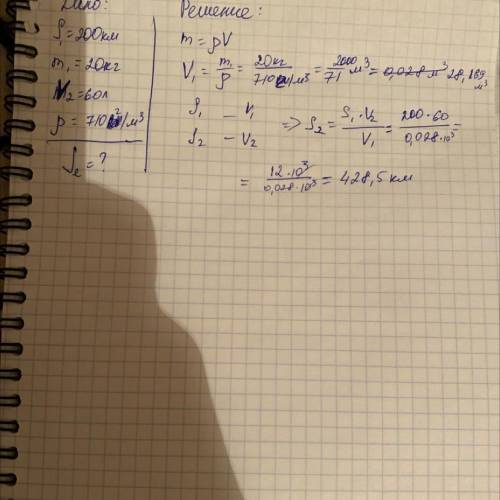 Дано:
S₁ = 200км
m₁ = 20кг
V₂ = 60л
ρ = 710 г/м³
S₂ = ?
Решение:
m = ρV
V₁ = m₁/ρ = 20кг/710 /м³ = 2000/71 м³ = 0,028 м³ 28,169 м³
S₁ – V₁
S₂ – V₂
=> S₂ = S₁·V₂/V₁ = 200·60/0,028·10³ =
= 12·10³/0,028·10³ = 428,5 км